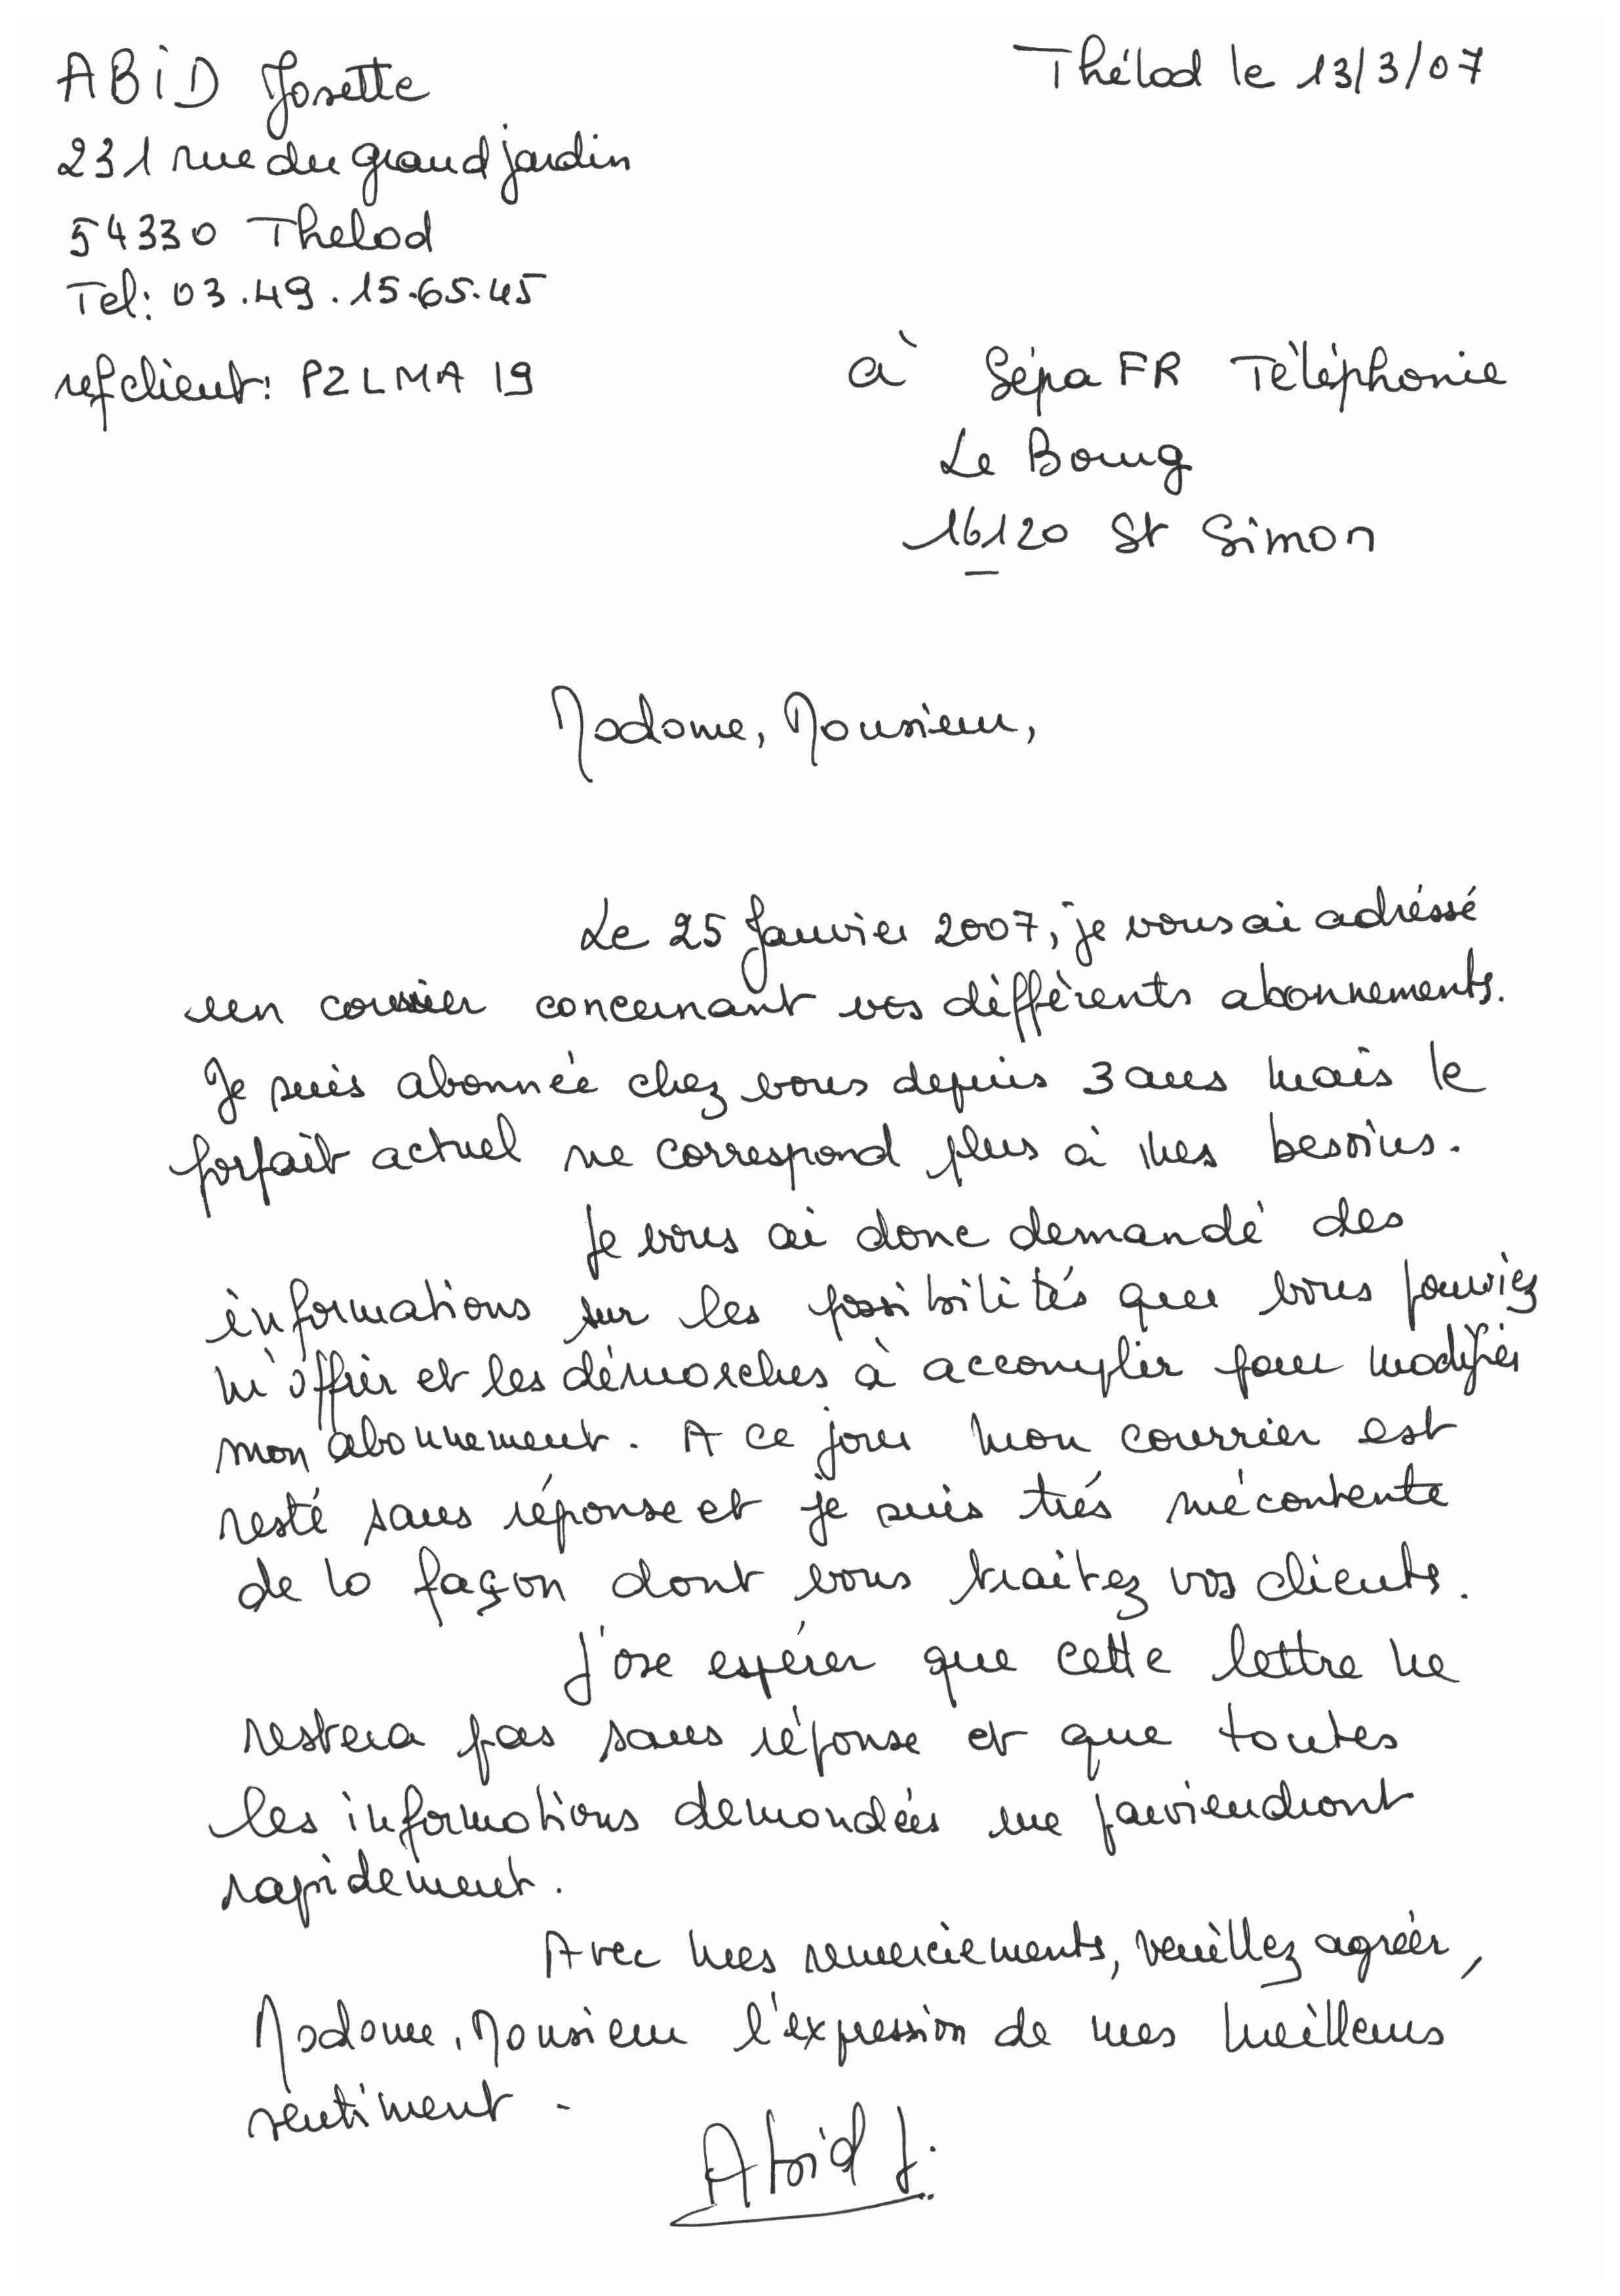 ABID Josette
Thélod le 13/3/07
231 rue du grand jardin
54330 Thelod
Tel: 03.49.15.65.45
ref client: PZLMA 19
à Sépa FR Téléphonie
Le Bourg
16120 St Simon
Madame, Monsieur,
Le 25 Janvier 2007, je vous ai adréssé
un courrier concernant vos différents abonnements.
Je suis abonnée chez vous depuis 3 ans mais le
forfait actuel ne correspond plus à mes besoins.
Je vous ai donc demandé des
informations sur les possibilités que vous pouviez
m'offrir et les démarches à accomplir pour modifier
mon abonnement. A ce jour mon courrier est
resté sans réponse et je suis trés mécontente
de la façon dont vous traitez vos clients.
J'ose espérer que cette lettre ne
restera pas sans réponse et que toutes
les informations demandées me parviendront
rapidement.
Avec mes remerciements, veuillez agréer,
Madame, Monsieur l'expression de mes meilleurs
sentiment.
Abid J.